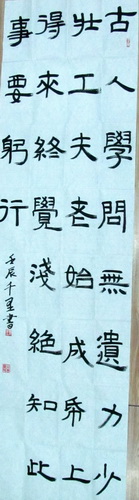 古人學問無遺力少
壯工夫老始成帋上
得來終覺淺絕知此
事要躬行
壬辰千書